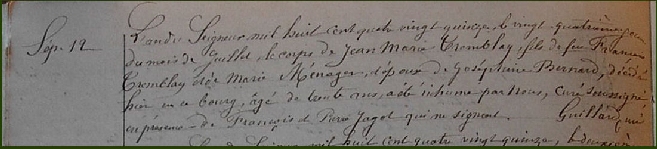 Sép. 12
L'an du Seigneur mil huit cent quatre vingt quinze, le vingt quatrième jour
du mois de Juillet, le corps de Jean Marie Tremblay, fils de feu François
Tremblay et de Marie Ménager, époux de Joséphine Bernard, décédé
hier en ce bourg, âgé de trente ans, a été inhumé par Nous, curé soussigné
en présence de François et Pierre Jagot qui ne signent. Guillard, curé
L'an du Seigneur mil huit cent quatre vingt quinze, le